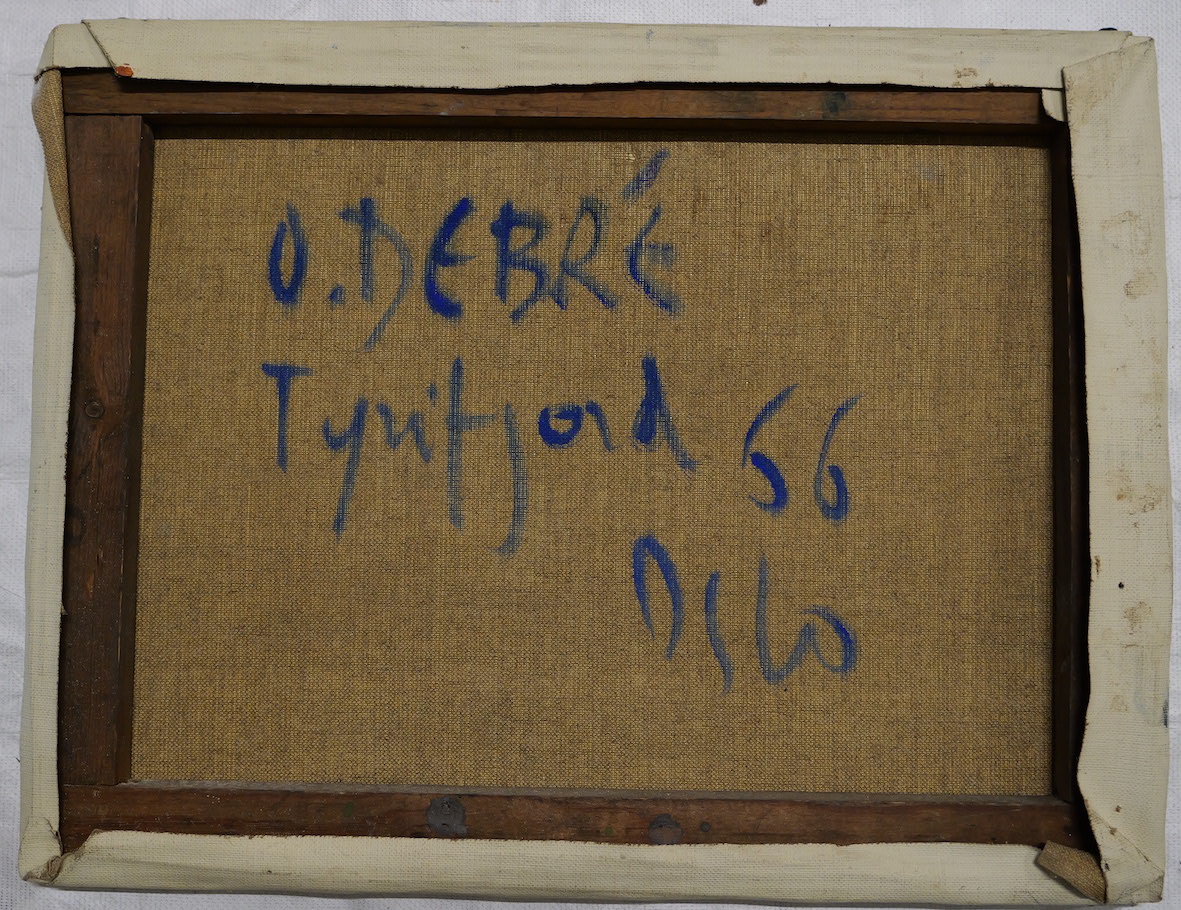 O. DEBRÉ
Tyrifjord 66
OSLO